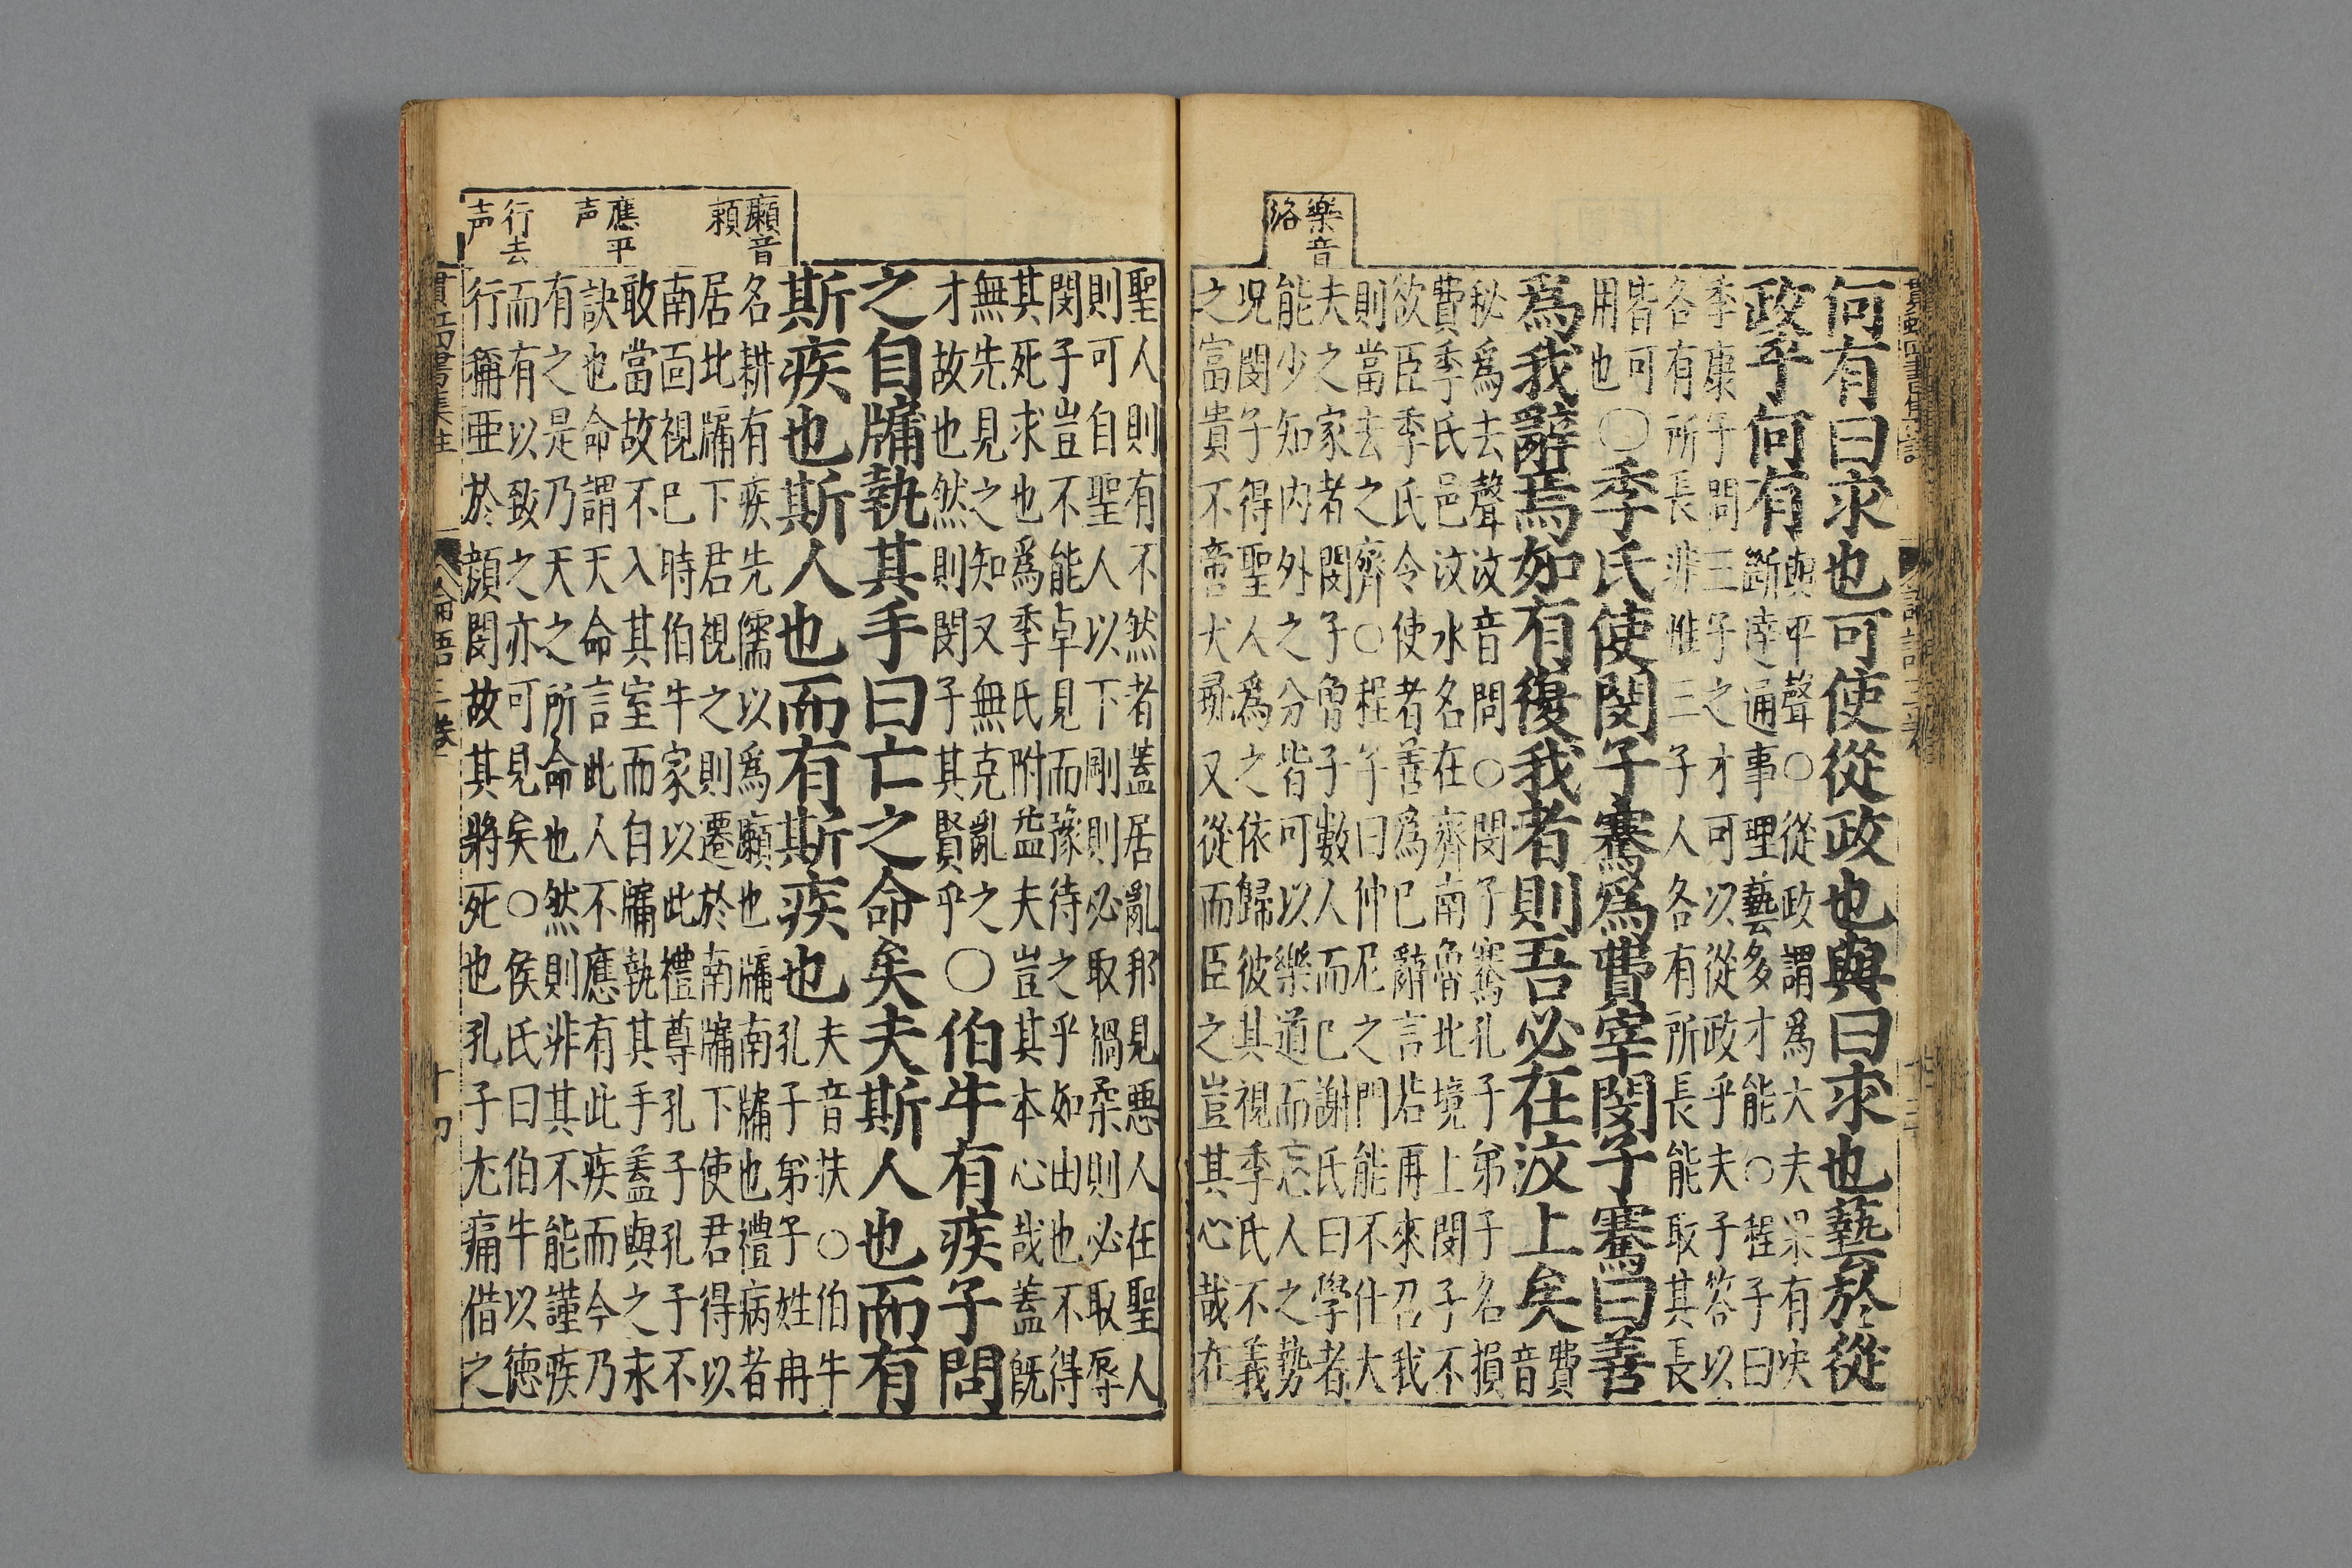 樂音
洛
何有曰求也可使從政也與曰求也藝於從
政乎何有
與平聲○從政謂爲大夫果有決
斷達通事理藝多才能○程子曰
季康子問三子之才可以從政乎夫子答以
各有所長非惟三子人各有所長能取其長
皆可
用也
○季氏使閔子騫爲費宰閔子騫曰善
爲我辭焉如有復我者則吾必在汶上矣
費
音
秘爲去聲汶音問○閔子騫孔子弟子名損
費季氏邑汶水名在齊南魯北境上閔子不
欲臣季氏令使者善爲巳辭言若再來召我
則當去之齊○程子曰仲尼之門能不仕大
夫之家者閔子曾子數人而巳謝氏曰學者
能少知內外之分皆可以樂道而忘人之勢
况閔子得聖人爲之依歸彼其視季氏不義
之富貴不啻犬彘又從而臣之豈其心哉在
癩音
頼
應平
声
行去
声
聖人則有不然者蓋居亂邦見惡人在聖人
則可自聖人以下剛則必取禍柔則必取辱
閔子豈不能卓見而豫待之乎如由也不得
其死求也爲季氏附益夫豈其本心哉蓋既
無先見之知又無克亂之
才故也然則閔子其賢乎
○伯牛有疾子問
之自牖執其手曰亡之命矣夫斯人也而有
斯疾也斯人也而有斯疾也
夫音扶○伯牛
孔子弟子姓冉
名耕有疾先儒以爲癩也牖南牖也禮病者
居北牖下君視之則遷於南牖下使君得以
南面視巳時伯牛家以此禮尊孔子孔子不
敢當故不入其室而自牖執其手蓋與之永
訣也命謂天命言此人不應有此疾而今乃
有之是乃天之所命也然則非其不能謹疾
而有以致之亦可見矣○侯氏曰伯牛以德
行稱亞於顔閔故其將死也孔子尤痛惜之
論語三卷